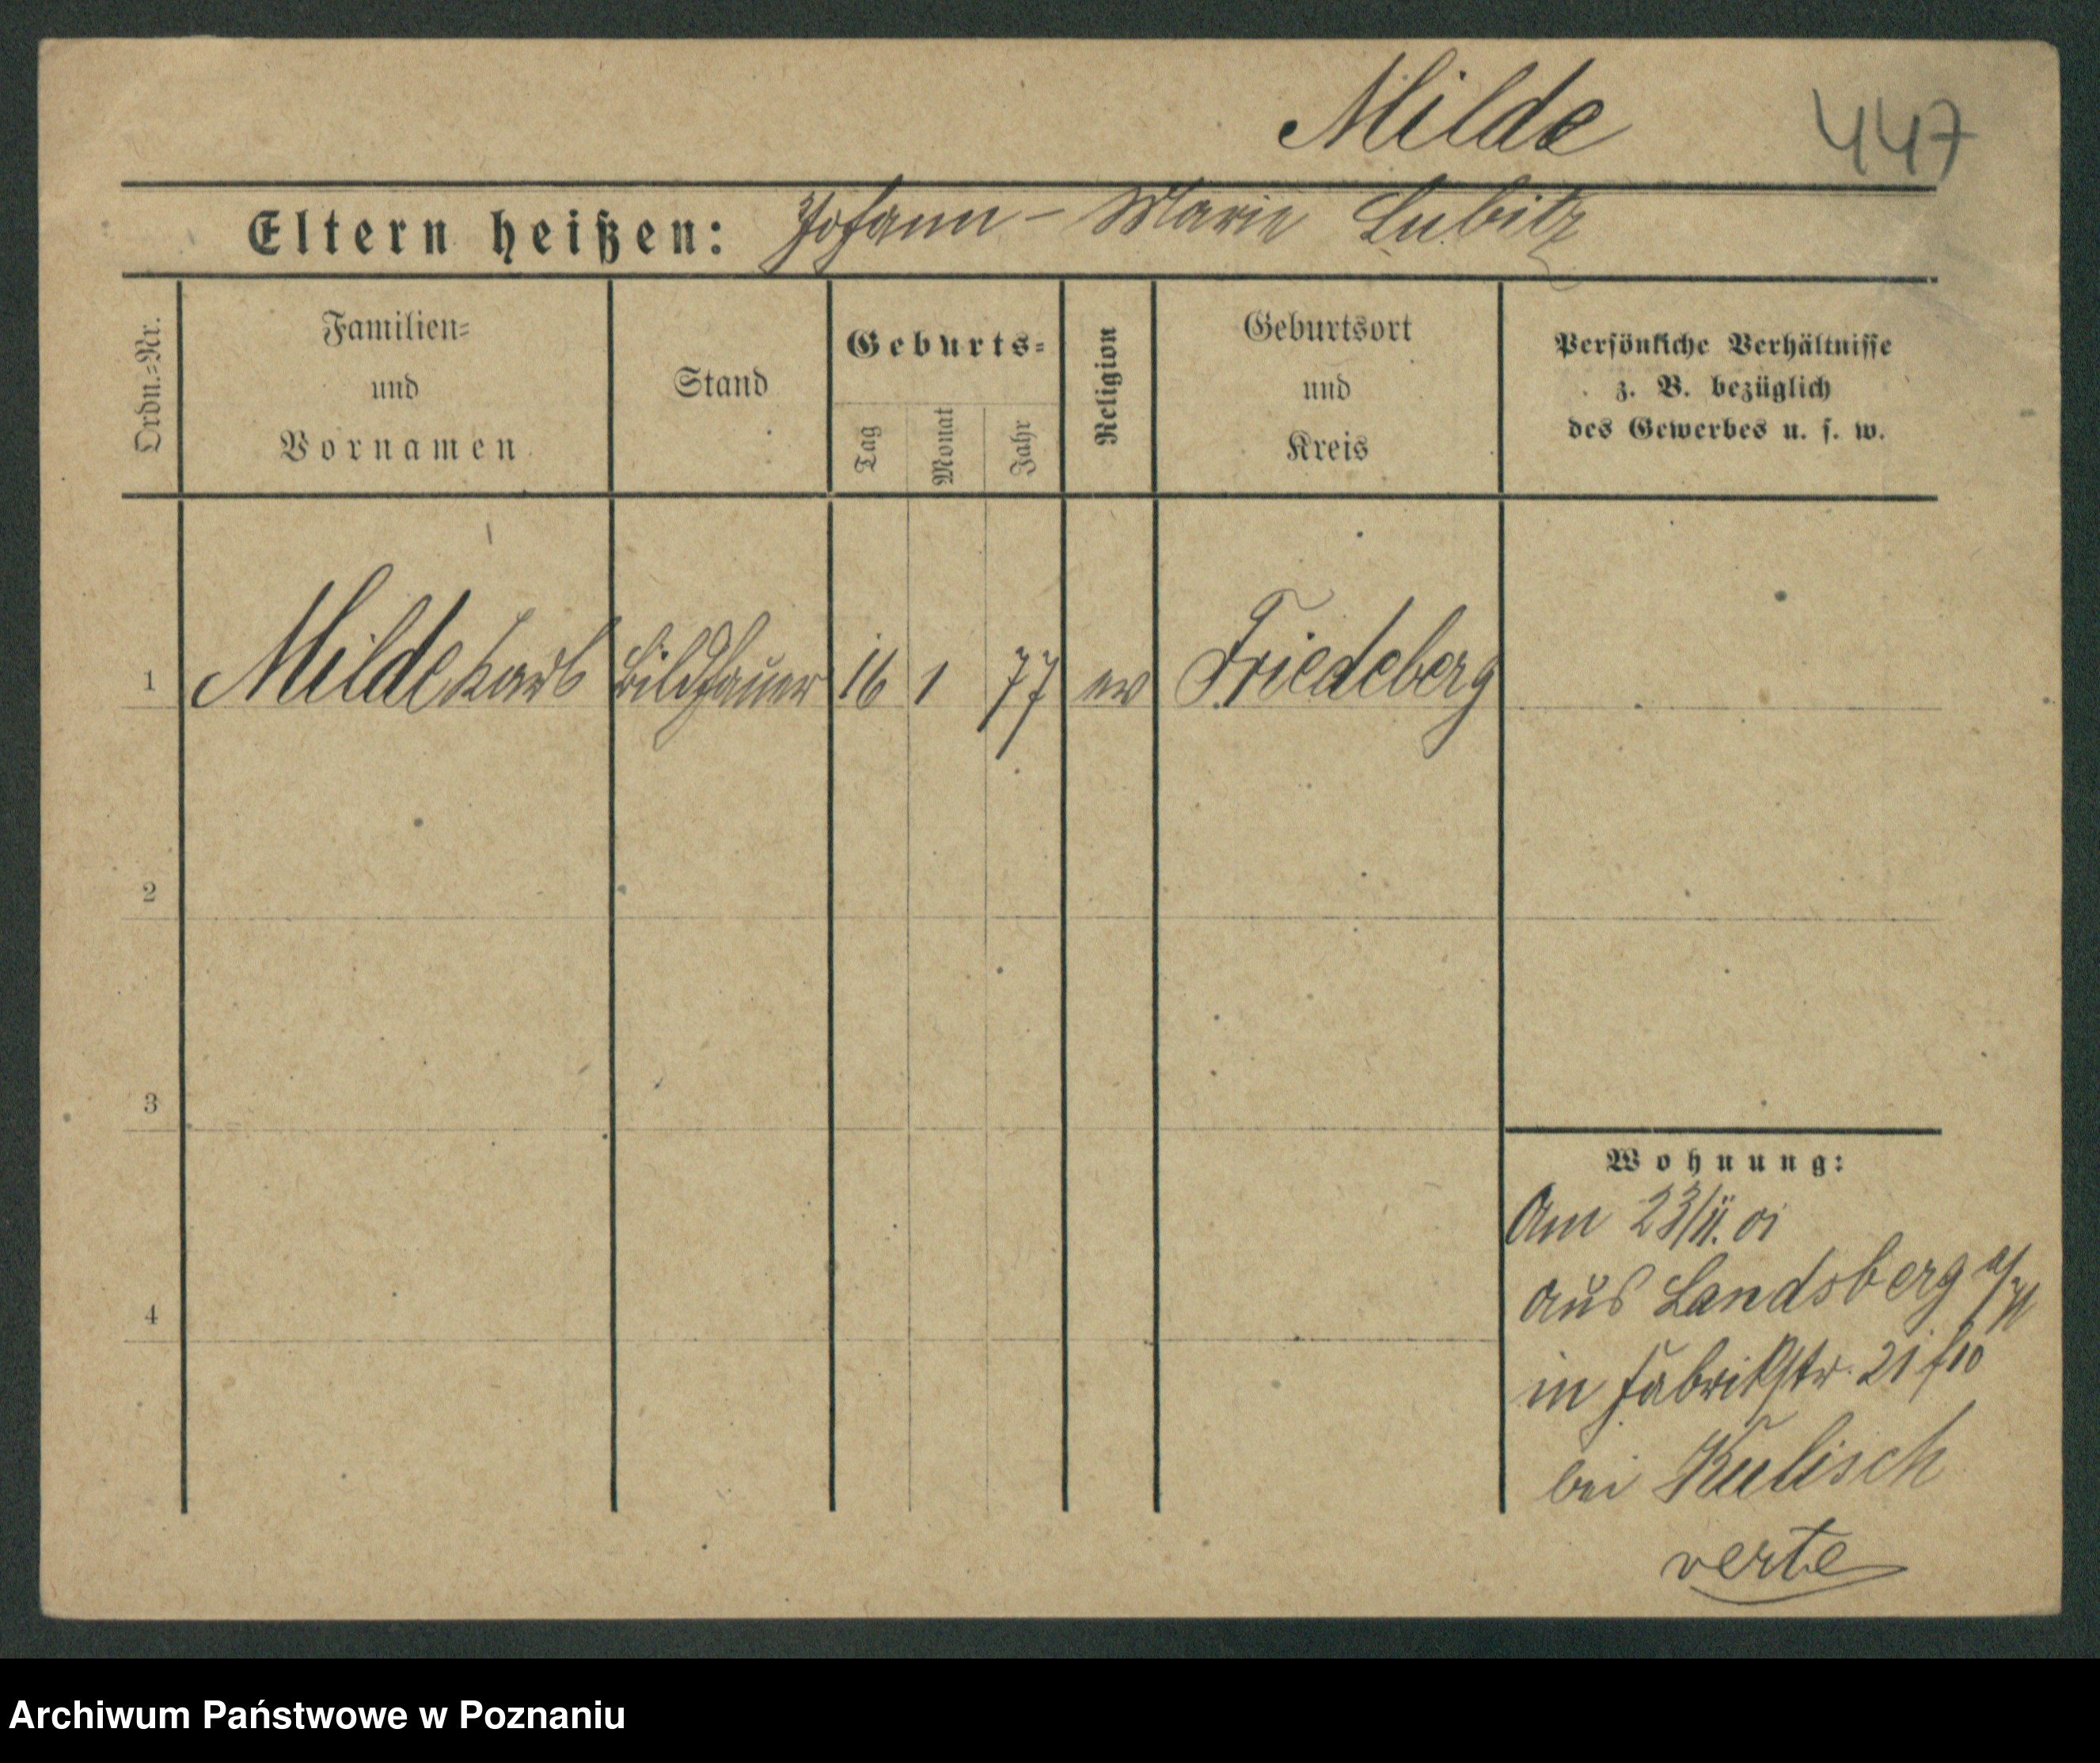 Milde
447
Eltern heißen: Johann - Marie Lubitz
Ordn.-Nr.
Familien-
und
Vornamen
Stand
Geburts-
Tag
Monat
Jahr
Religion
Geburtsort
und
Kreis
Persönliche Verhältnisse
z. B. bezüglich
des Gewerbes u. s. w.
1 Milde Karl Bildhauer 16 1 77 ev Friedeberg
2
3
4
Wohnung:
Am 23/11. 01
aus Landsberg a/W
in Fabrikstr. 21
bei Kulisch
verte
Archiwum Państwowe w Poznaniu